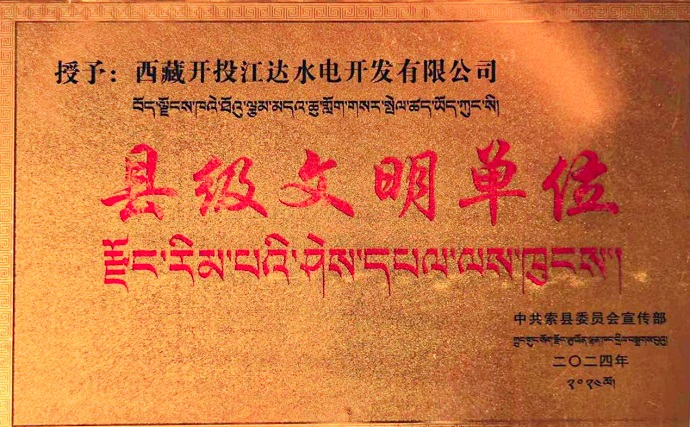 授予：西藏开投江达水电开发有限公司
བོད་ལྗོངས་ཁའེ་ཐོའུ་ལྕམ་མདའ་ཆུ་གློག་གསར་སྤེལ་ཚད་ཡོད་ཀུང་སི།
县级文明单位
རྫོང་རིམ་པའི་ཤེས་དཔལ་ལས་ཁུངས།
中共索县委员会宣传部
ཀྲུང་གུང་སོག་རྫོང་ཨུ་ཡོན་ལྷན་ཁང་དྲིལ་བསྒྲགས་པུའུ།
二〇二四年
༢༠༢༤ལོ།